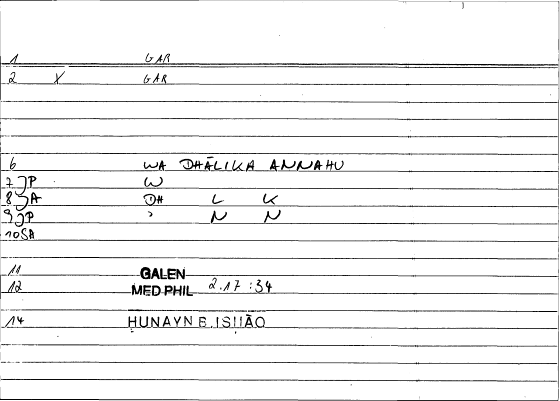 1 GAR
2 X GAR
6 WA DHĀLIKA ANNAHU
7 JP W
8 JA DH L K
9 JP ʾ N N
10 SA
11 GALEN
12 MED PHIL 2.17:34
14 ḤUNAYN B. ISḤĀQ